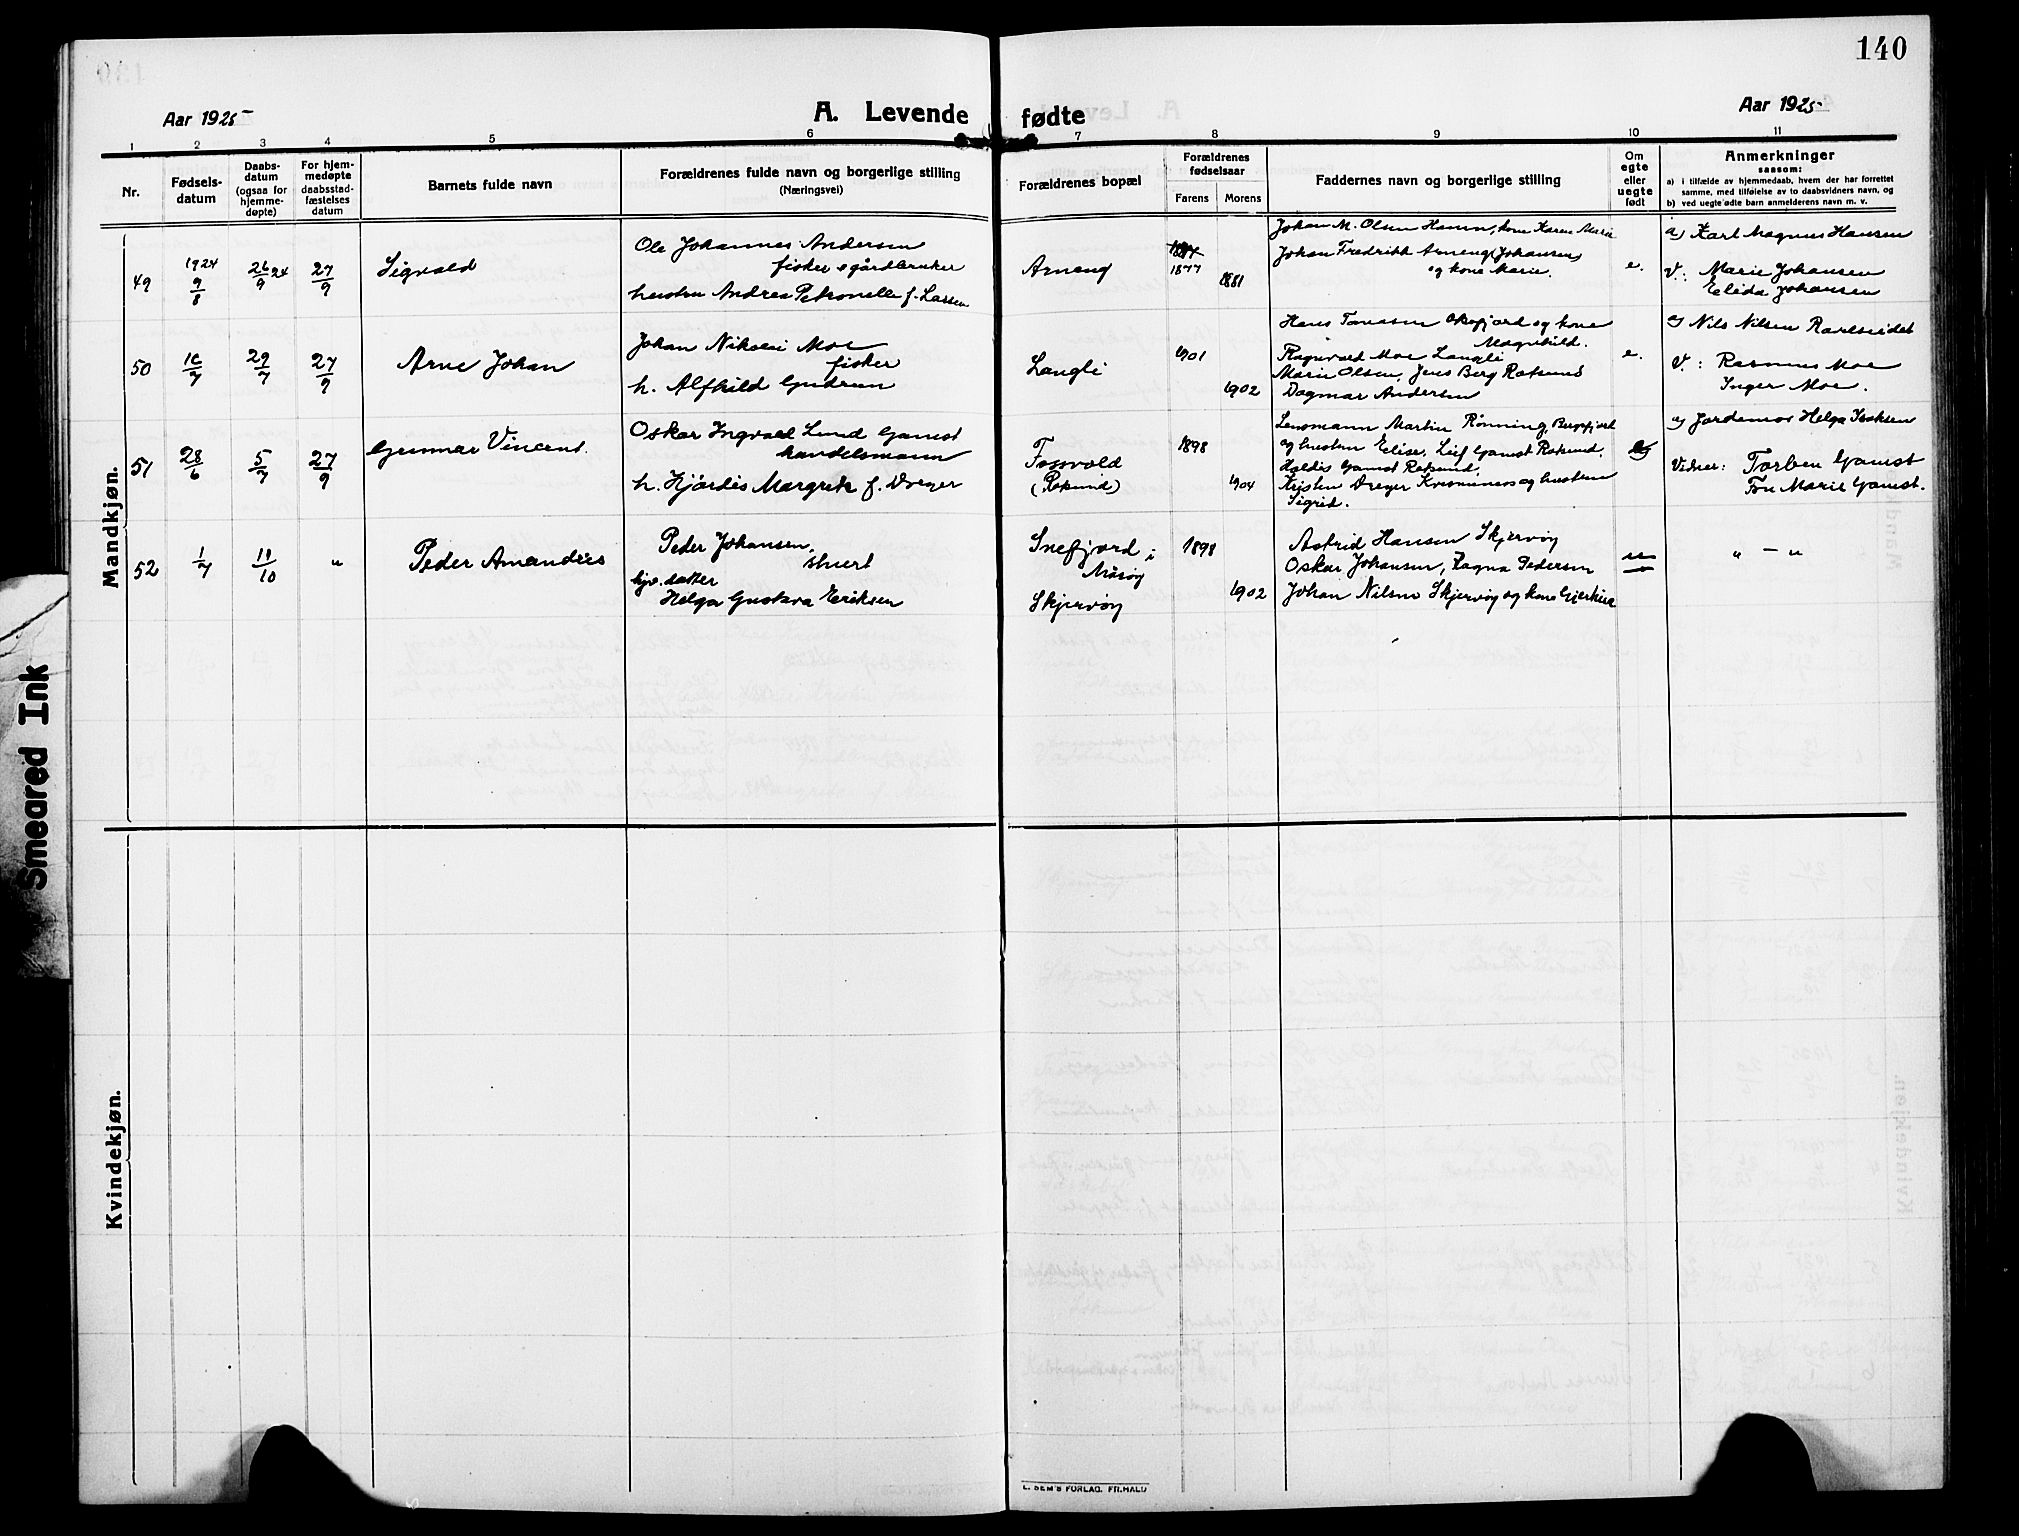 140
Aar 1925
A. Levende fødte
Aar 1925
1 2 3 4 5 6 7 8 9 10 11
Nr.
Fødsels-
datum
Daabs-
datum
(ogsaa for
hjemme-
døpte)
For hjem-
medøpte
daabsstad-
fæstelses
datum
Barnets fulde navn
Forældrenes fulde navn og borgerlige stilling
(Næringsvei)
Forældrenes bopæl
Forældrenes
fødselsaar
Farens Morens
Faddernes navn og borgerlige stilling
Om
egte
eller
uegte
født
Anmerkninger
saasom:
a) i tilfælde av hjemmedaab, hvem der har forrettet
samme, med tilføielse av to daabsvidners navn, og
b) ved uegte fødte barn anmelderens navn m. v.
Mandkjøn.
49
1924
9/8
26/9 24
27/9
Sigvald
Ole Johannes Andersen
fisker o gårdbruker
hustru Andrea Petronelle f. Larsen
Arneng
1877
1881
Johan M. Olsen Hamn, kone Karen Marie
Johan Fredrikk Arneng (Johansen)
og kone Marie.
e.
a) Karl Magnus Hansen
V.: Marie Johansen
Elida Johansen
50
29/7
27/9
Arne Johan
Johan Nikolai Moe
fisker
h. Alfhild Gudrun
Langli
1901
1902
Hans Tomassen Oksfjord og kone
Magnhild.
Ragnvald Moe Langli
Marie Olsen, Jens Berg Roksund
Dagmar Andersen
e.
a) Nils Nilsen Karlseidet
V.: Rasmus Moe
Inger Moe.
51
28/6
5/7
27/9
Gunnar Vincent.
Oskar Ingvald Lund Gamst
handelsmann
h. Hjørdis Margrete f. Dreyer
Fossvold
(Roksund)
1898
1904
Lensmann Martin Rønning, Bergsfjord
og hustru Elise, Leif Gamst Roksund,
Haldis Gamst Roksund,
Kristen Dreyer og hustru
Sigrid.
a) Jordemor Helga Isaksen
Vidner: Torben Gamst
Fru Marie Gamst.
52
1/7
11/10
"
Peder Amandus
Peder Johansen,
stuert
Helga Gustava Eriksen
Snefjord i
Måsøy
Skjervøy
1898
1902
Astrid Hansen Skjervøy
Oskar Johansen, Ragna Pedersen
Johan Nilsen Skjervøy og kone
u
" — "
Kvindekjøn.
Smeared Ink
E. SEM'S FORLAG. FR.HALD